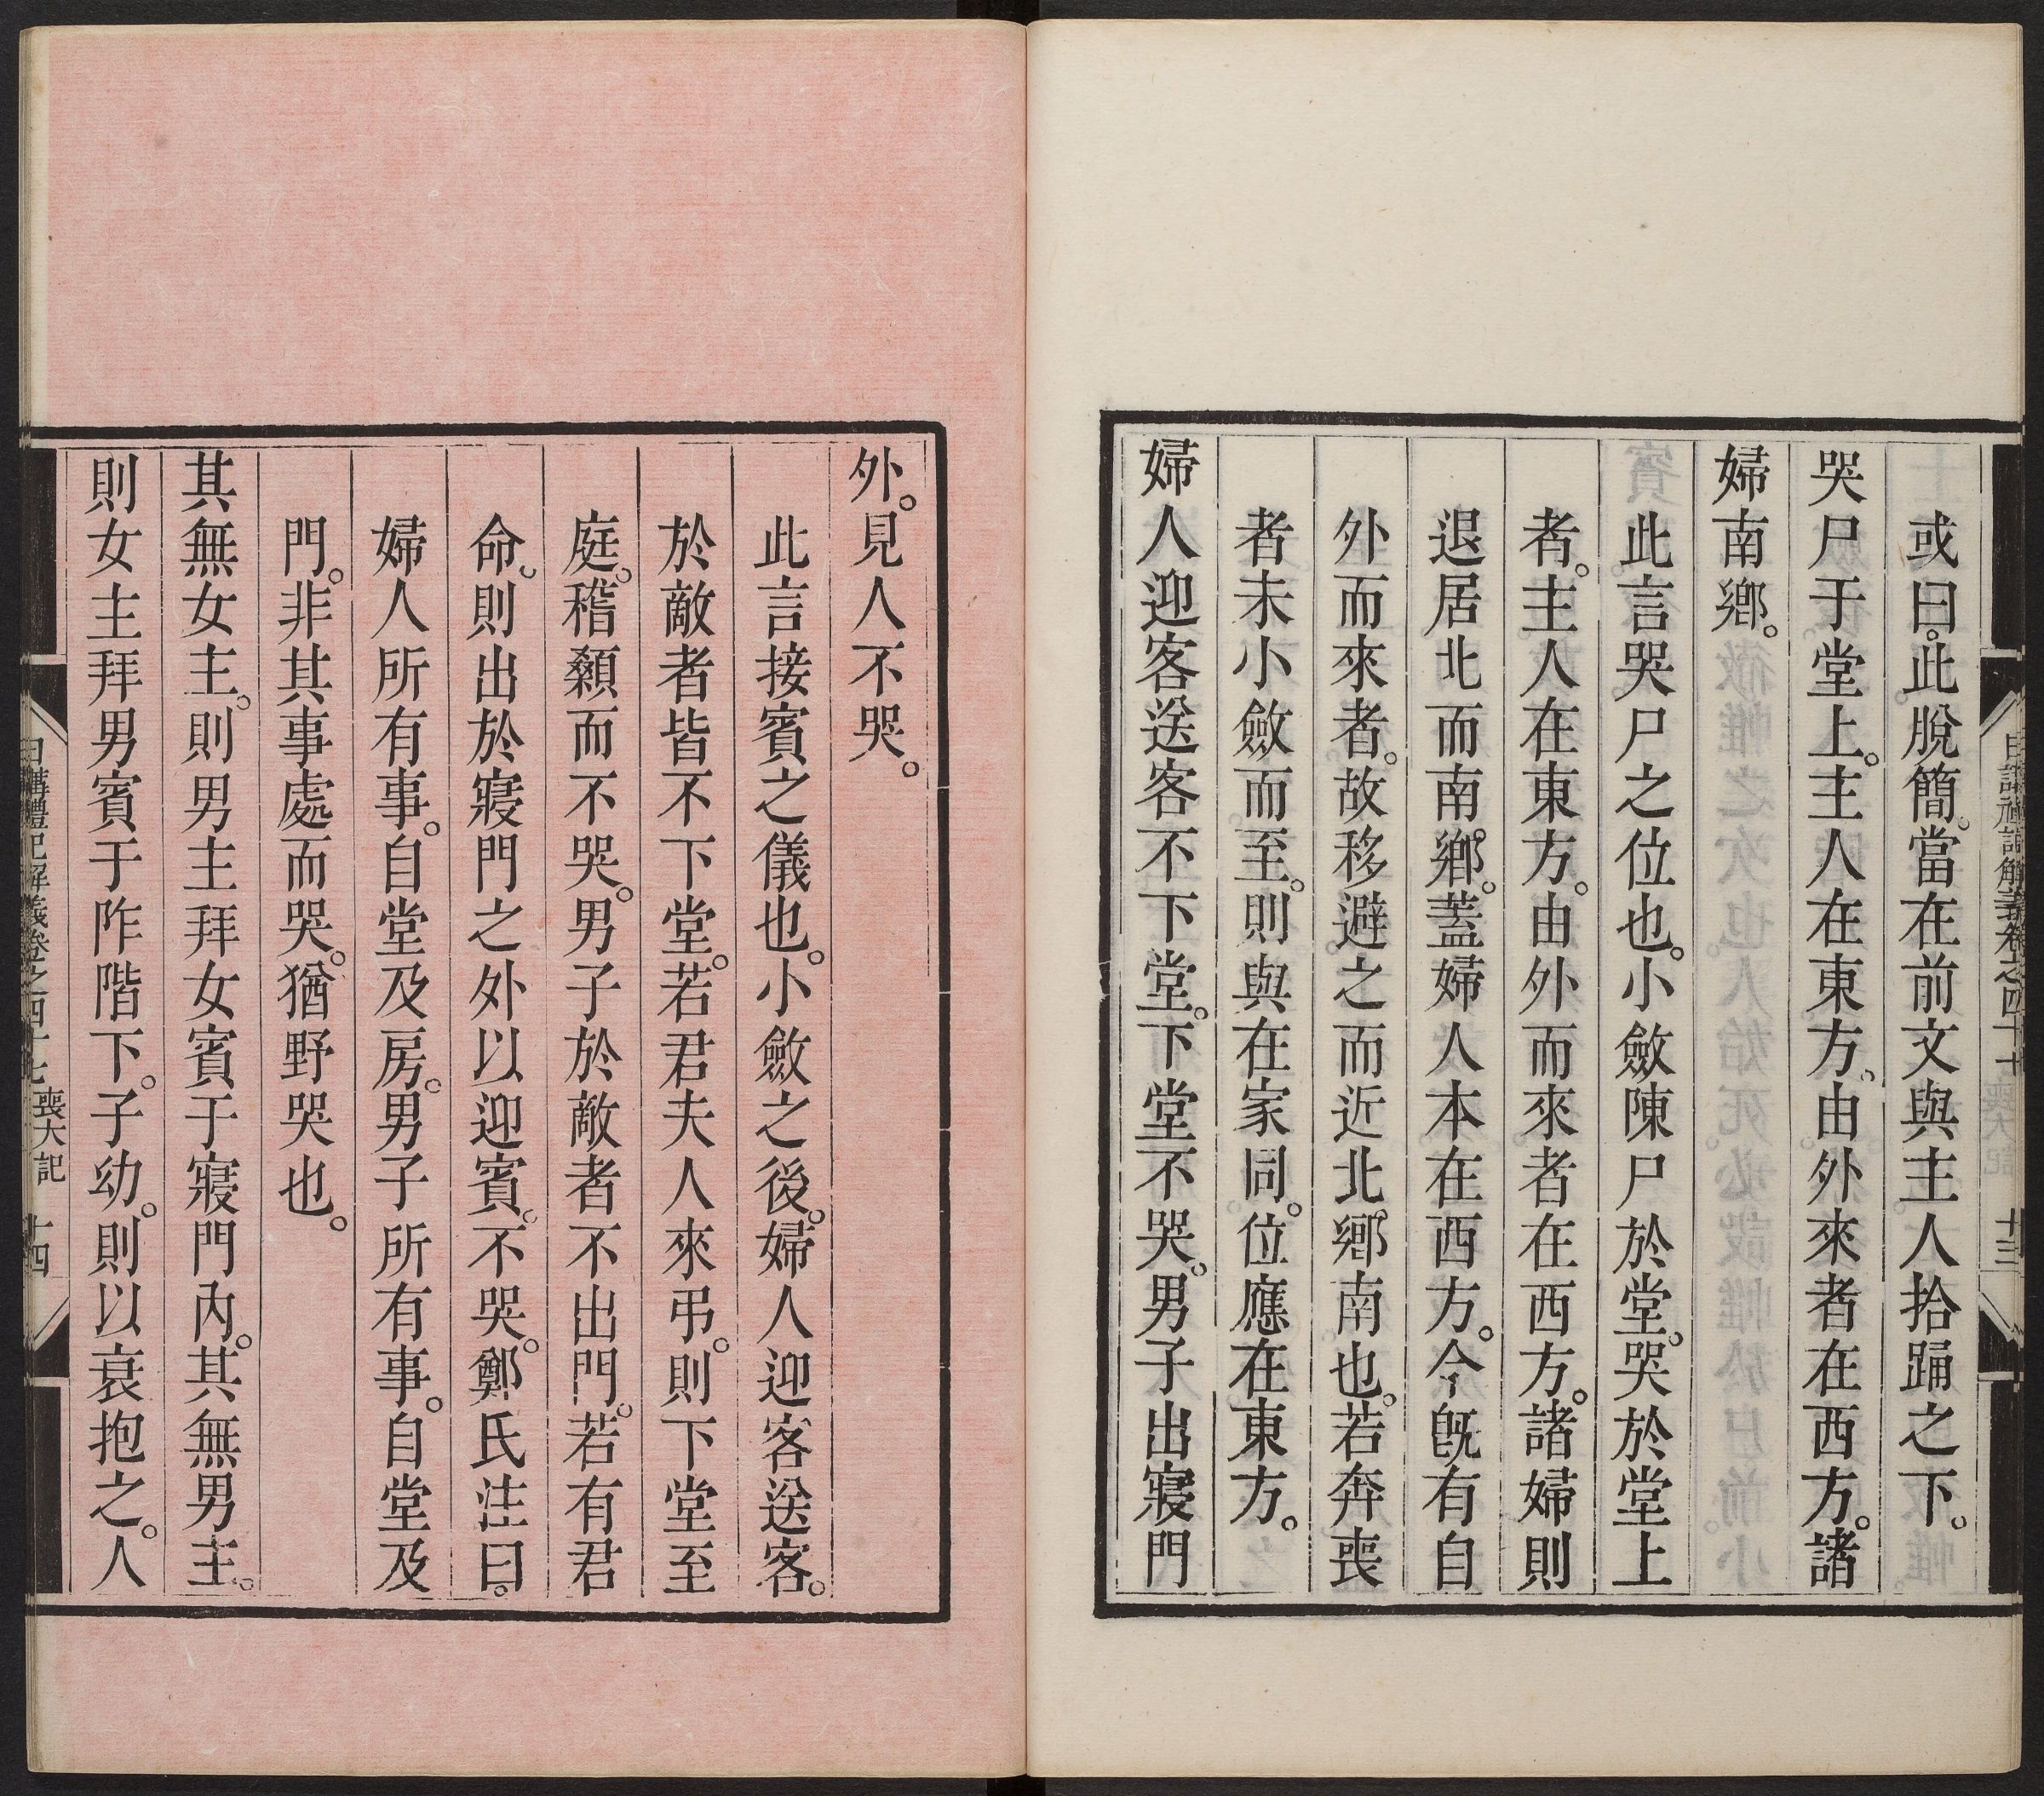 或曰。此脫簡。當在前文與主人拾踊之下。
哭尸于堂上。主人在東方。由外來者在西方。諸
婦南鄉。
此言哭尸之位也。小斂陳尸於堂。哭於堂上
者。主人在東方。由外而來者在西方。諸婦則
退居北而南鄉。蓋婦人本在西方。今旣有自
外而來者。故移避之而近北鄉南也。若奔喪
者未小斂而至。則與在家同。位應在東方。
婦人迎客送客不下堂。下堂不哭。男子出寢門
外。見人不哭。
此言接賓之儀也。小斂之後。婦人迎客送客。
於敵者皆不下堂。若君夫人來弔。則下堂至
庭。稽顙而不哭。男子於敵者不出門。若有君
命。則出於寢門之外以迎賓。不哭。鄭氏注曰。
婦人所有事。自堂及房。男子所有事。自堂及
門。非其事處而哭。猶野哭也。
其無女主。則男主拜女賓于寢門內。其無男主。
則女主拜男賓于阼階下。子幼。則以衰抱之。人
日講禮記解義卷之四十七 喪大記 十四